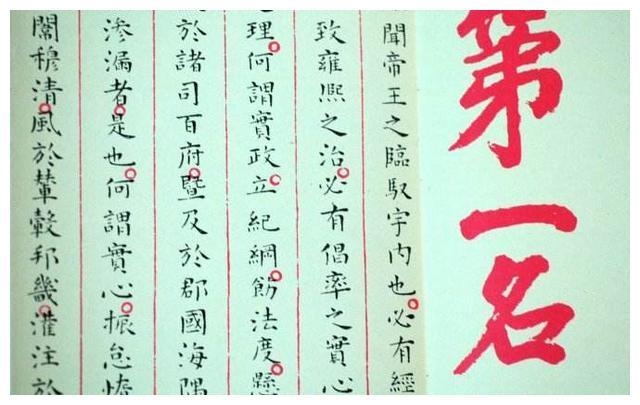 第一名
聞帝王之臨馭宇內也必有經
致雍熙之治必有倡率之實心
理何謂實政立紀綱飭法度懸
於諸司百府暨及於郡國海隅
滲漏者是也何謂實心振怠惰
闈穆清風於輦轂邦畿灌注於